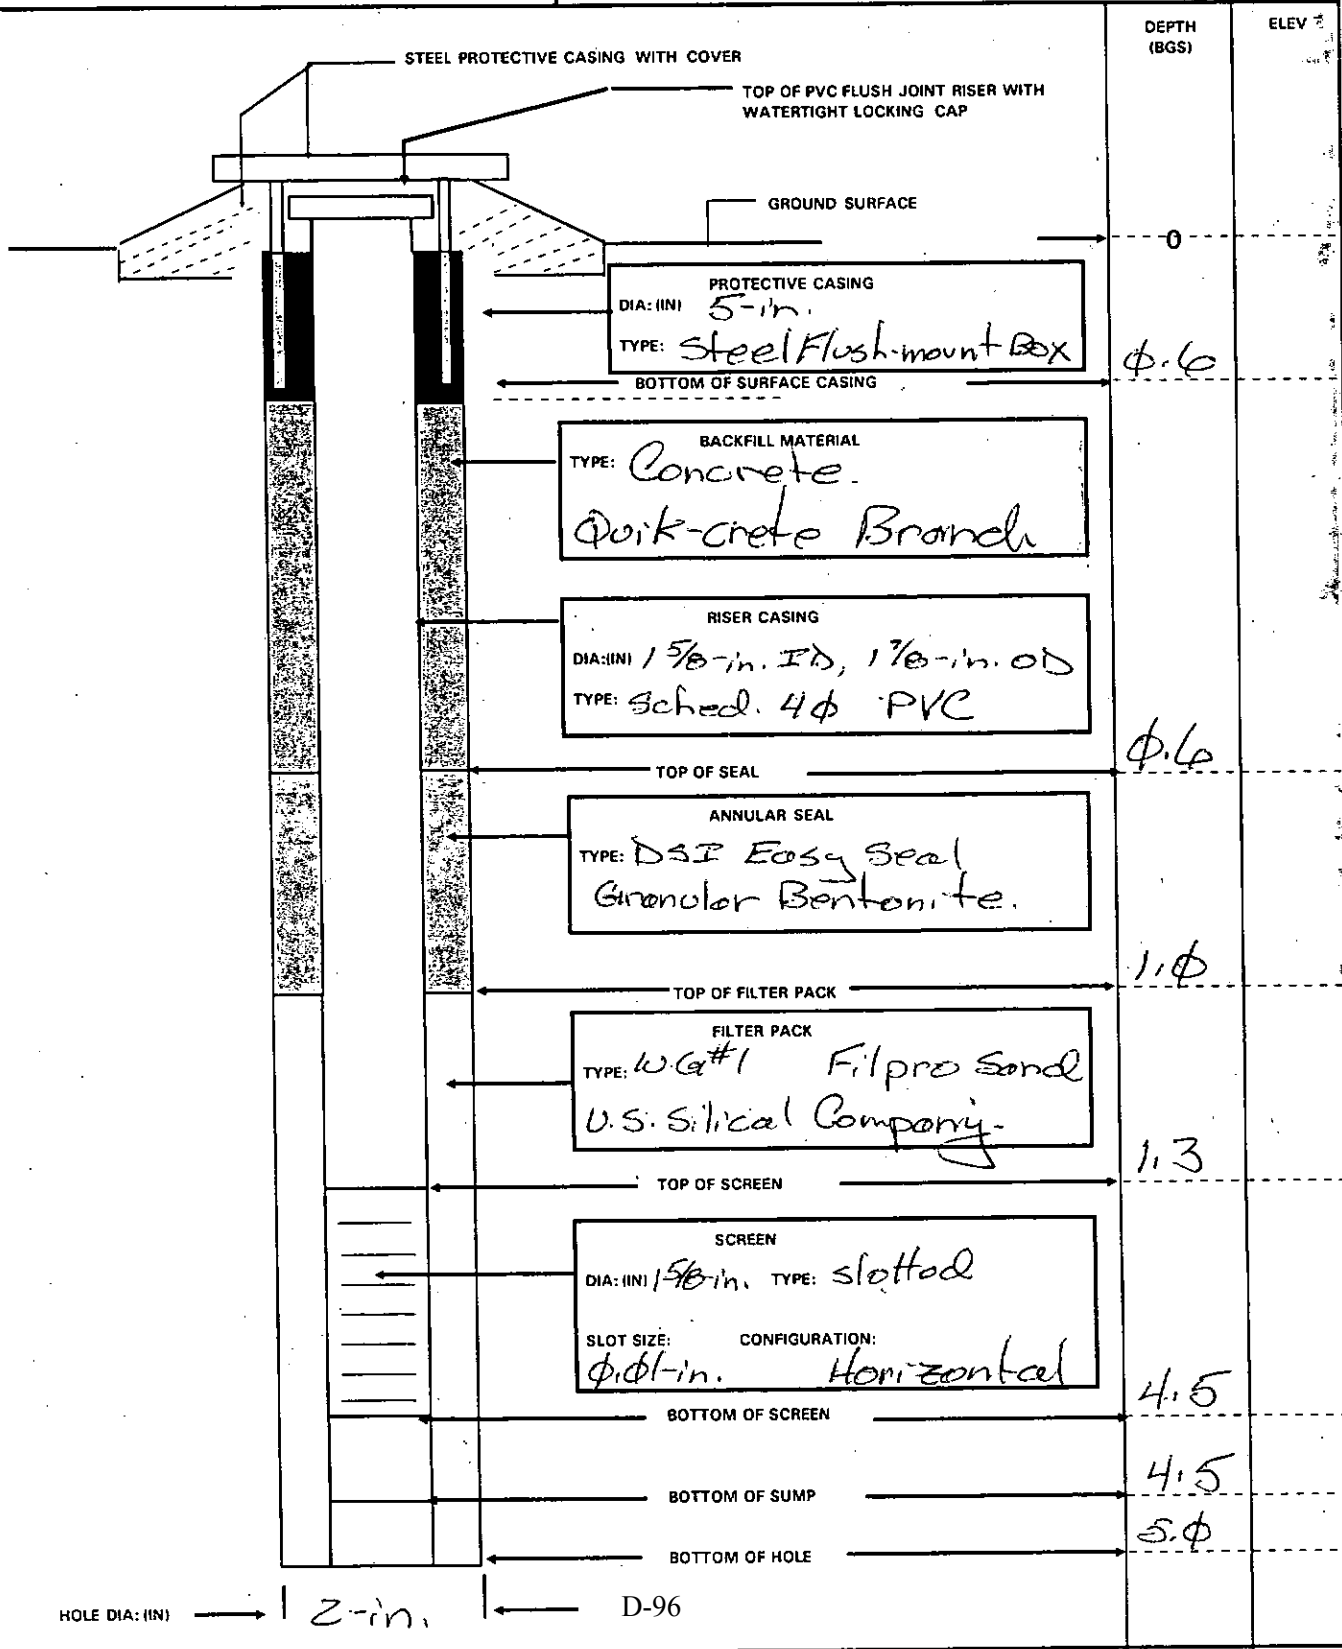 DEPTH (BGS)
ELEV
STEEL PROTECTIVE CASING WITH COVER
TOP OF PVC FLUSH JOINT RISER WITH
WATERTIGHT LOCKING CAP
GROUND SURFACE
0
PROTECTIVE CASING
DIA:(IN) 5-in.
TYPE: Steel Flush-mount Box
BOTTOM OF SURFACE CASING
φ.6
BACKFILL MATERIAL
TYPE: Concrete.
Quik-crete Brand
RISER CASING
DIA:(IN) 1 5/8-in. ID, 1 7/8-in. OD
TYPE: Sched. 4φ PVC
TOP OF SEAL
φ.6
ANNULAR SEAL
TYPE: DSI Easy Seal
Granular Bentonite.
TOP OF FILTER PACK
1.φ
FILTER PACK
TYPE: W.G#1 Filpro Sand
U.S. Silical Company.
TOP OF SCREEN
1.3
SCREEN
DIA:(IN) 1 5/8-in. TYPE: Slotted
SLOT SIZE: CONFIGURATION:
φ.φ1-in. Horizontal
BOTTOM OF SCREEN
4.5
BOTTOM OF SUMP
4.5
BOTTOM OF HOLE
5.φ
HOLE DIA:(IN) 2-in.
D-96